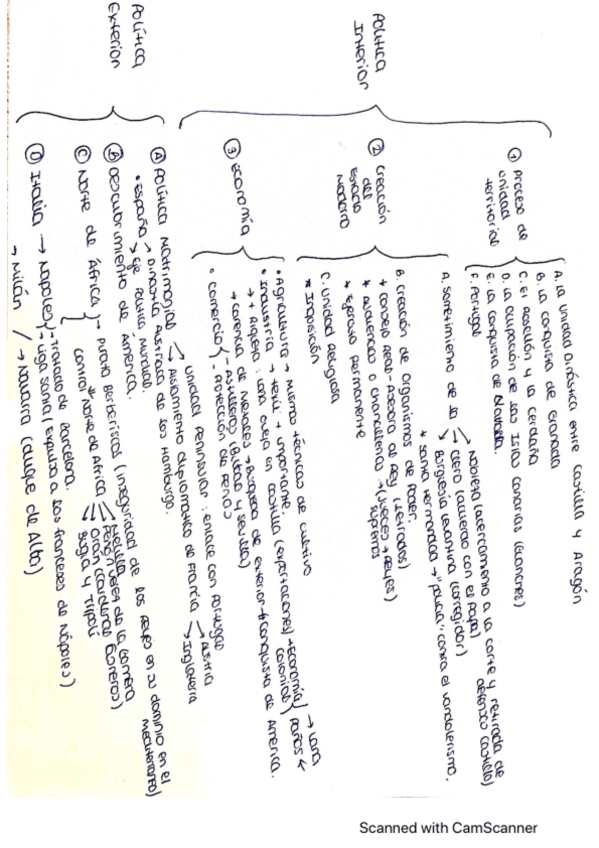 Política Interior
① Proceso de unidad territorial
A. La unidad dinástica entre Castilla y Aragón
B. La conquista de Granada
C. El Rosellón y la Cerdaña
D. La ocupación de las Islas Canarias (Guanches)
E. La conquista de Navarra.
F. Portugal
② Creación del Estado Moderno
A. Sometimiento de la
→ Nobleza (acercamiento a la corte y retirada de defensa castillo)
→ Clero (acuerdo con el Papa)
→ Burguesía levantina (corregidor)
* Santa Hermandad → "policía" contra el vandalismo.
B. Creación de Organismos de Poder.
* Consejo Real - Asesora al Rey (letrados)
* Audiencias o chancillerías → (jueces + leyes) supremos
* Ejército Permanente
C. Unidad Religiosa
* Inquisición
③ Economía
• Agricultura → mismas técnicas de cultivo
• Industria → textil + importante. (exportaciones) + economía → lana
→ + Riqueza: lana oveja en Castilla colonial paños
→ carencia de metales → Búsqueda de exterior → Conquista de América.
• Comercio - Astilleros (Bilbao y Sevilla)
- Protección de ferias
Política Exterior
Ⓐ Política Matrimonial → unidad peninsular: enlace con Portugal
→ Aislamiento diplomático de Francia → Austria
→ Inglaterra
• España → Dinastía Austriaca de los Hamburgo.
→ Eje política mundial.
Ⓑ Descubrimiento de América.
Ⓒ Norte de África - Piratas Berberiscos (inseguridad de los Reyes en su dominio en el Mediterráneo)
control Norte de África
→ Melilla
→ Peñón Vélez de la Gomera
→ Orán (Cardenal Cisneros)
→ Bugía y Trípoli
Ⓓ Italia → Nápoles - Tratado de Barcelona.
- Liga Santa (expulsa a los franceses de Nápoles)
→ Milán / → Navarra (Duque de Alba)
Scanned with CamScanner